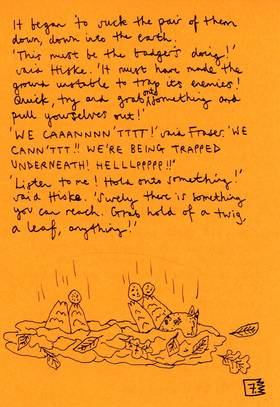 It began to suck the pair of them
down, down into the earth.
'This must be the badger's doing!'
said Hiske. 'It must have made the
ground unstable to trap its enemies!
Quick, try and grab onto something and
pull yourselves out!'
'WE CAAANNNN'TTTT!' said Fraser. 'WE
CANN'TTT!! WE'RE BEING TRAPPED
UNDERNEATH! HELLLPPPPP!!'
'Listen to me! Hold onto something!'
said Hiske. 'Surely there is something
you can reach. Grab hold of a twig,
a leaf, anything!'
7